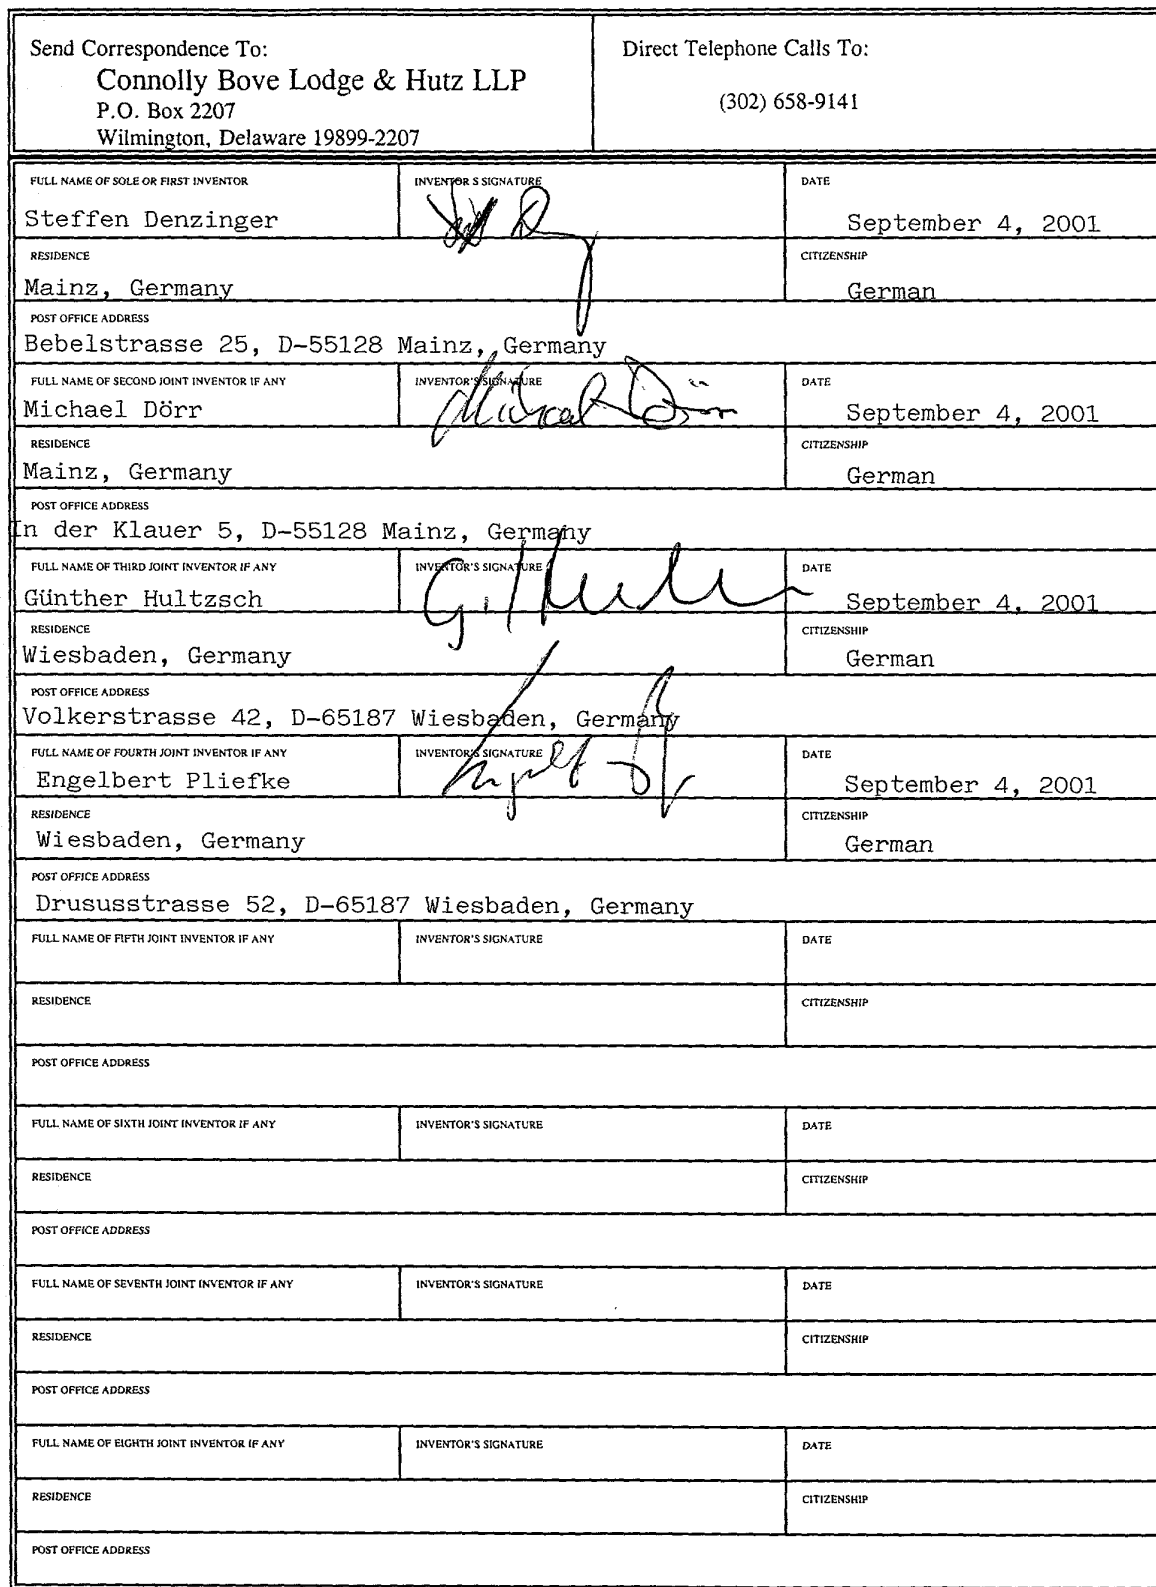 Send Correspondence To:
Connolly Bove Lodge & Hutz LLP
P.O. Box 2207
Wilmington, Delaware 19899-2207
Direct Telephone Calls To:
(302) 658-9141
FULL NAME OF SOLE OR FIRST INVENTOR
Steffen Denzinger
INVENTOR S SIGNATURE
DATE
September 4, 2001
RESIDENCE
Mainz, Germany
CITIZENSHIP
German
POST OFFICE ADDRESS
Bebelstrasse 25, D-55128 Mainz, Germany
FULL NAME OF SECOND JOINT INVENTOR IF ANY
Michael Dörr
INVENTOR'S SIGNATURE
Michael Dörr
DATE
September 4, 2001
RESIDENCE
Mainz, Germany
CITIZENSHIP
German
POST OFFICE ADDRESS
In der Klauer 5, D-55128 Mainz, Germany
FULL NAME OF THIRD JOINT INVENTOR IF ANY
Günther Hultzsch
INVENTOR'S SIGNATURE
DATE
September 4, 2001
RESIDENCE
Wiesbaden, Germany
CITIZENSHIP
German
POST OFFICE ADDRESS
Volkerstrasse 42, D-65187 Wiesbaden, Germany
FULL NAME OF FOURTH JOINT INVENTOR IF ANY
Engelbert Pliefke
INVENTOR'S SIGNATURE
DATE
September 4, 2001
RESIDENCE
Wiesbaden, Germany
CITIZENSHIP
German
POST OFFICE ADDRESS
Drususstrasse 52, D-65187 Wiesbaden, Germany
FULL NAME OF FIFTH JOINT INVENTOR IF ANY
INVENTOR'S SIGNATURE
DATE
RESIDENCE
CITIZENSHIP
POST OFFICE ADDRESS
FULL NAME OF SIXTH JOINT INVENTOR IF ANY
INVENTOR'S SIGNATURE
DATE
RESIDENCE
CITIZENSHIP
POST OFFICE ADDRESS
FULL NAME OF SEVENTH JOINT INVENTOR IF ANY
INVENTOR'S SIGNATURE
DATE
RESIDENCE
CITIZENSHIP
POST OFFICE ADDRESS
FULL NAME OF EIGHTH JOINT INVENTOR IF ANY
INVENTOR'S SIGNATURE
DATE
RESIDENCE
CITIZENSHIP
POST OFFICE ADDRESS